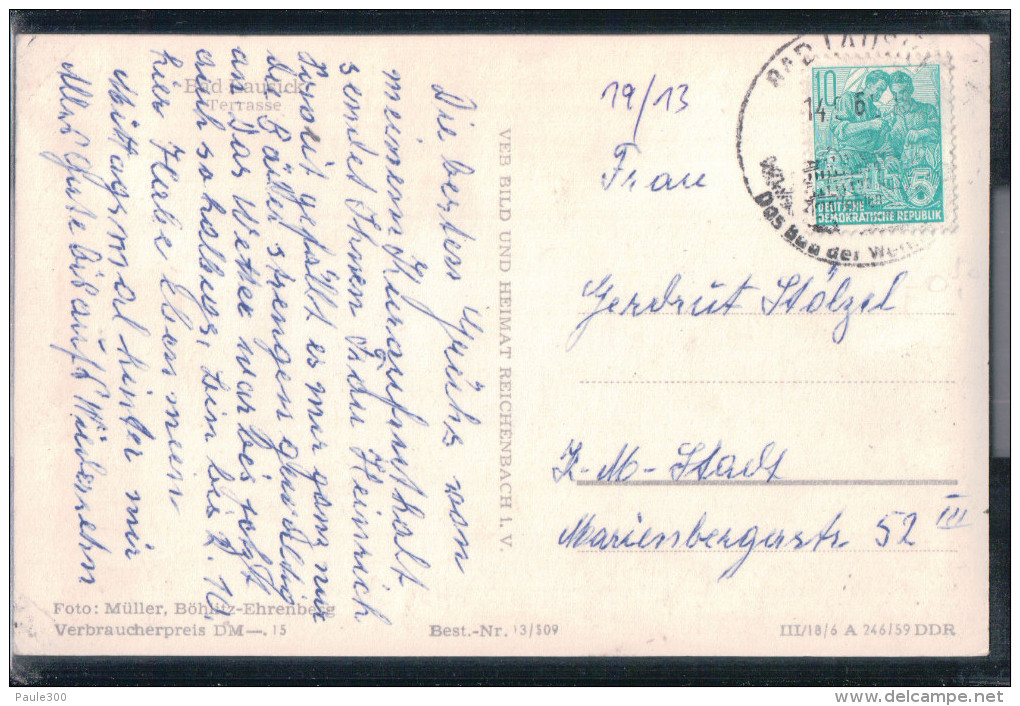 Bad Lausick
Terrasse
Die besten Grüße von
meinem Kuraufenthalt
sendet Ihnen Frau Heinrich
Soweit gefällt es mir ganz nur
die Bäder strengen
an Das Wetter war bis jetzt
auch so
bin bis 7. 10.
hier Habe Eben mein
Mittagsmal hinter mir
Alles gute bis auf Wiedersehn
VEB BILD UND HEIMAT REICHENBACH i. V.
19/13
BAD LAUSICK
14
6
Das Bad der
10
5
DEUTSCHE
DEMOKRATISCHE REPUBLIK
Frau
Gerdrut Stölzel
K-M-Stadt
Marienbergerstr. 52 III
Foto: Müller, Böhlitz-Ehrenberg
Verbraucherpreis DM—.15
Best.-Nr. 13/509
III/18/6 A 246/59 DDR
Paule300
www.delcampe.net